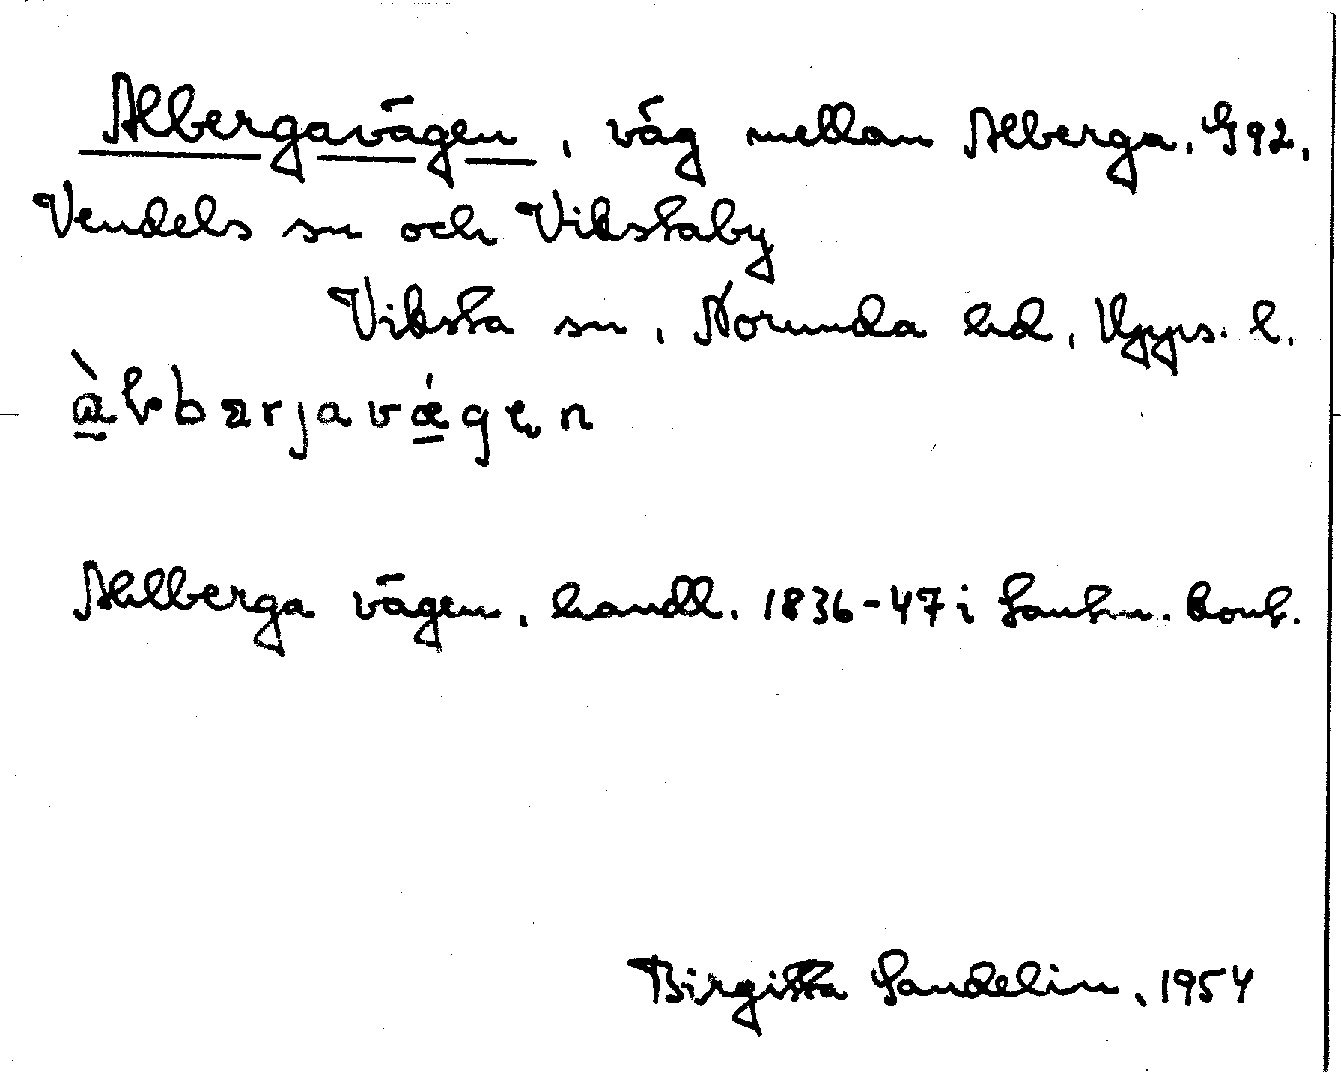 Albergavägen, väg mellan Alberga, G92,
Vendels sn och Vikstaby
Viksta sn, Norunda hd, Upps. l.
àlbærjavǽgen
Ahlberga vägen, handl. 1836-47 i Lantm. kont.
Birgitta Sandelin, 1954